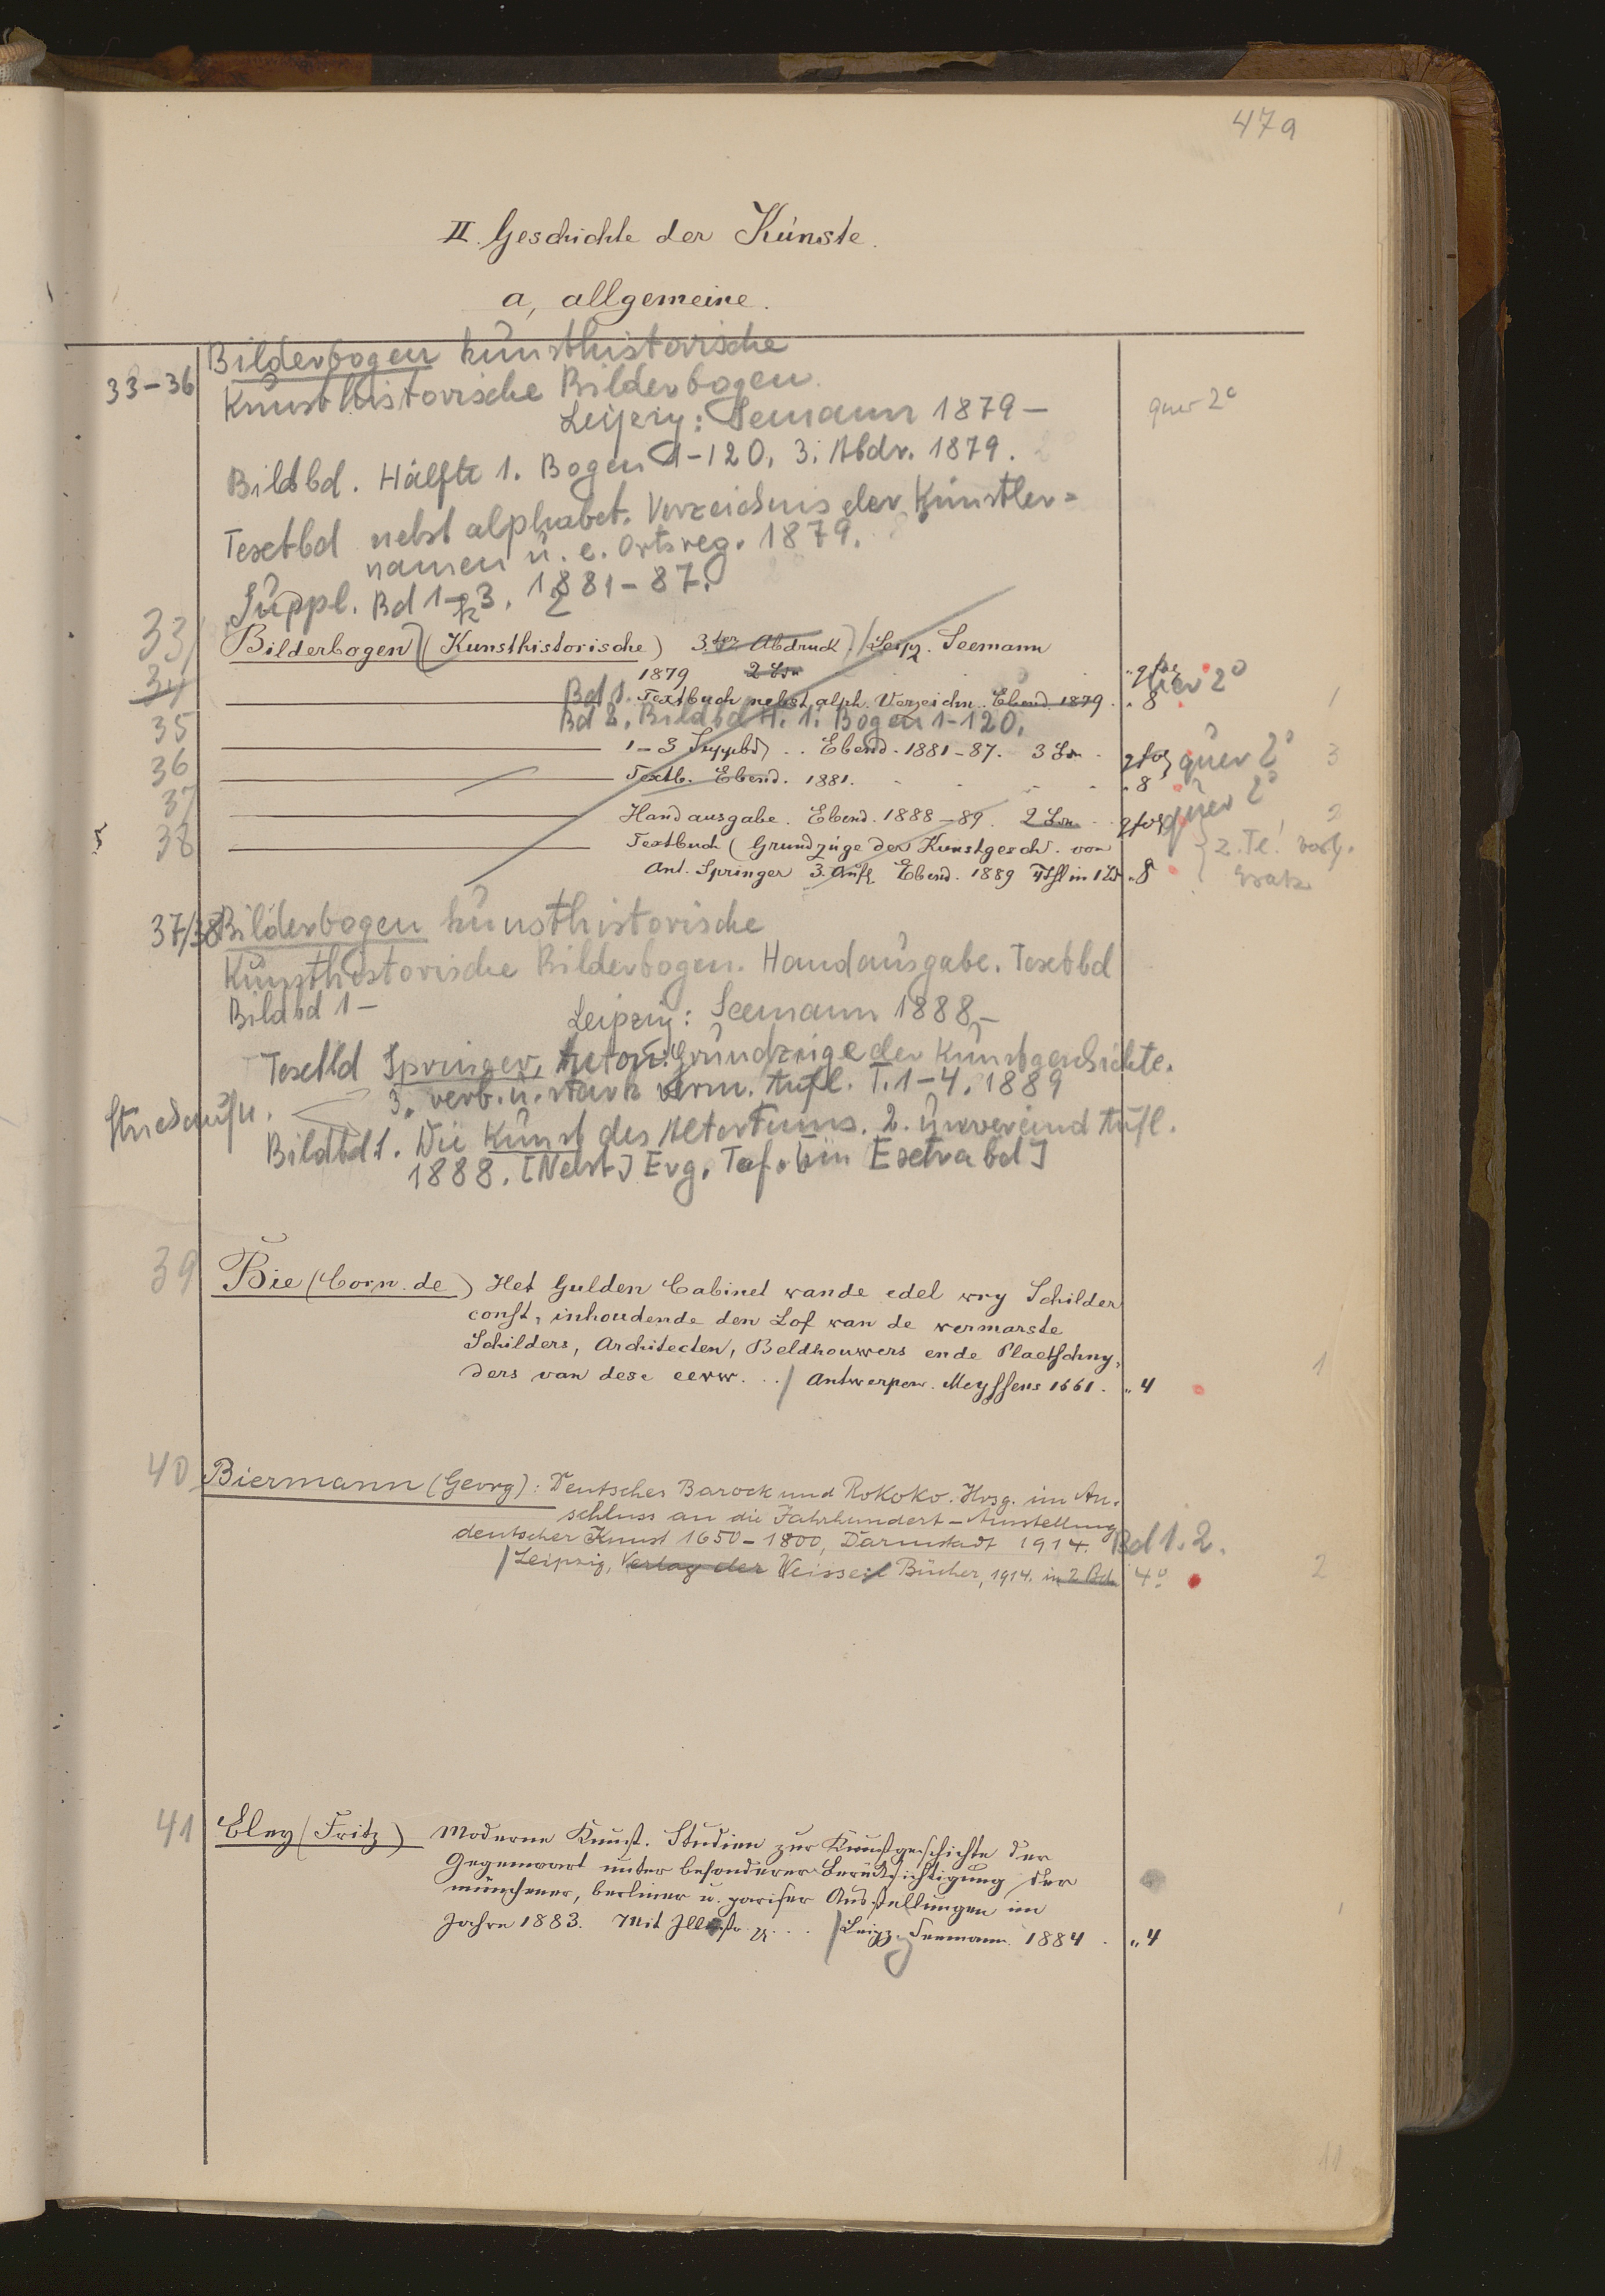 479
II. Geschichte der Künste.
a, allgemeine.
33-36
Bilderbogen kunsthistorische
Kunsthistorische Bilderbogen.
Leipzig: Seemann 1879-
quer 2°
Bildbd. Hälfte 1. Bogen 1-120. 3. Abdr. 1879.
Textbd nebst alphabet. Verzeichnis der Künstler=
namen u. e. Ortsreg. 1879.
Suppl. Bd 1-3. 1881-87.
33 Bilderbogen (Kunsthistorische) 3ter Abdruck. / Leipz. Seemann
34 1879 2 Bde quer 2°
Bd 1. Textbuch nebst alph. Verzeichn. Ebend. 1879. " 8 1
Bd 2. Bildbd H. 1. Bogen 1-120.
35 1-3 Supplbd .. Ebend. 1881-87. 3 Bde qfol quer 2° 3
36 Textb. Ebend. 1881. " 8
37 Handausgabe. Ebend. 1888-89. 2 Bde qfol quer 2° 2
38 Textbuch (Grundzüge der Kunstgesch. von z. Te!
Ant. Springer 3. Aufl. Ebend. 1889 4 Thl in 1 Bd " 8 Ersatz
37/38 Bilderbogen kunsthistorische
Kunsthistorische Bilderbogen. Handausgabe. Textbd
Bildbd 1-
Leipzig: Seemann 1888-
Textbd Springer, Anton: Grundzüge der Kunstgeschichte.
3. verb. u. stark verm. Aufl. T. 1-4. 1889
Bildbd 1. Die Kunst des Altertums. 2. unveränd Aufl.
1888. [Nebst] Erg. Taf. [in Extrabd]
39 Bie (Corn. de) Het Gulden Cabinet vande edel vry Schilder
const, inhoudende den Lof van de vermarste
Schilders, Architecten, Beldhouwers ende Plaetschny,
ders van dese eevw. .. / Antwerpen. Meyssens 1661. " 4 1
40 Biermann (Georg): Deutsches Barock und Rokoko. Hrsg. im An-
schluss an die Jahrhundert-Ausstellung
deutscher Kunst 1650-1800, Darmstadt 1914. Bd 1. 2.
/ Leipzig, Verlag der Weissen Bücher, 1914. in 2 Bd. 4° 2
41 Bley (Fritz) Moderne Kunst. Studien zur Kunstgeschichte der
Gegenwart unter besonderer Berücksichtigung der
münchener, berliner u. pariser Ausstellungen im
Jahre 1883. Mit Illustr. ... / Leipz. Seemann 1884. " 4
11